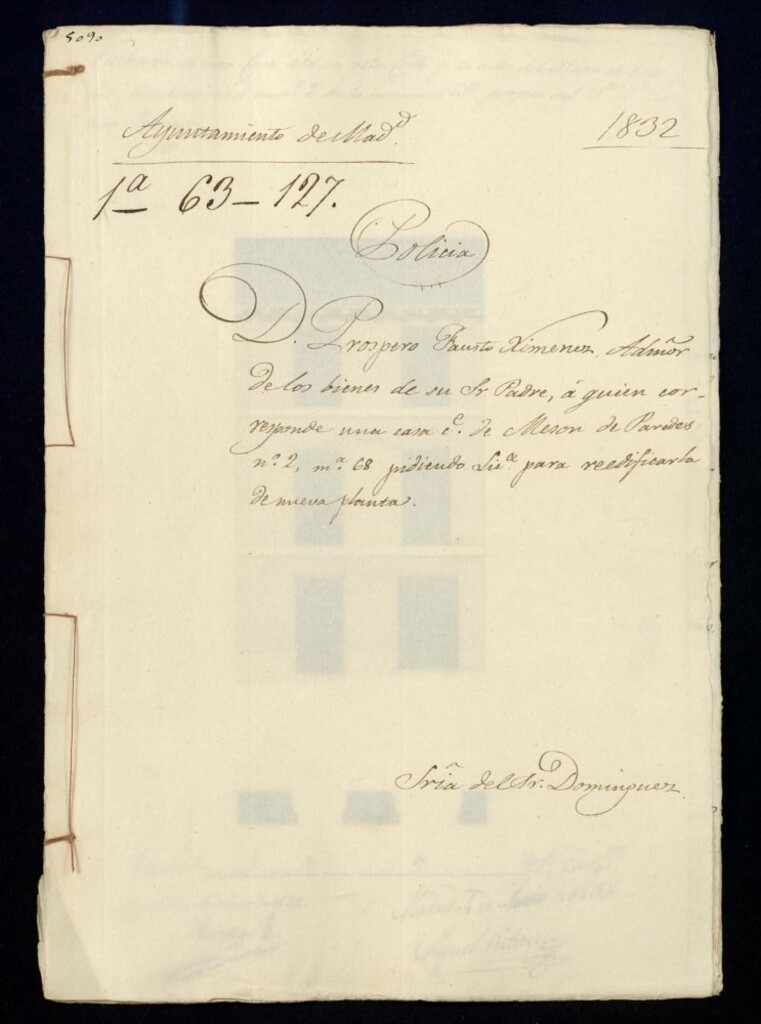 5090
Ayuntamiento de Mad.d
1832
1a 63-127.
Policia
D. Prospero Fausto Ximenez, Admor
de los bienes de su Sr. Padre, á quien cor-
responde una casa c.e de Meson de Paredes
n.o 2, m.a 68 pidiendo Lic.a para reedificarla
de nueva planta.
Sria del Sr. Dominguez